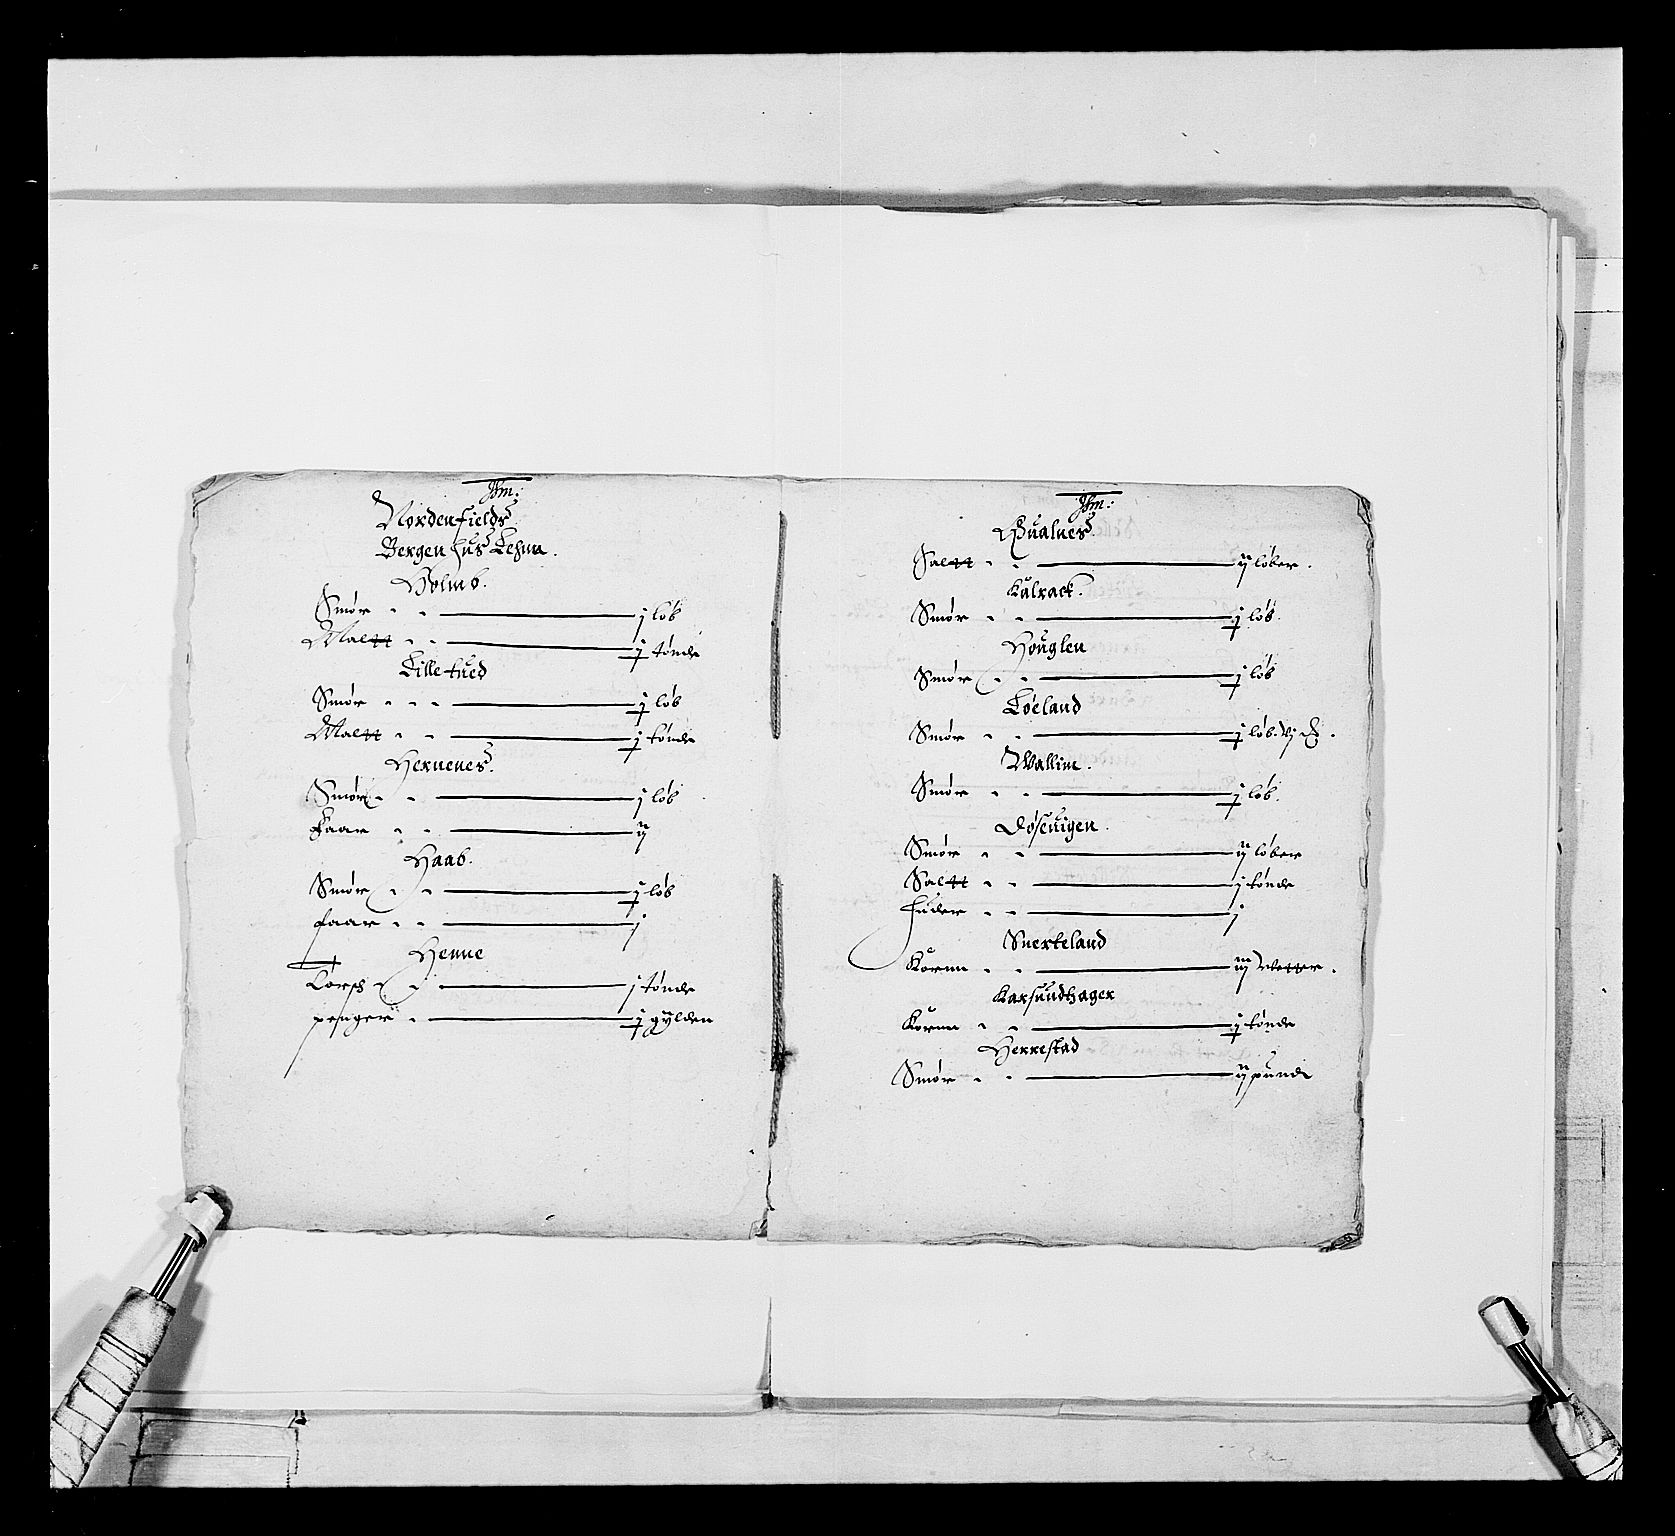 Jtem:
Nordenfields
Bergenhus Lehnn.
Holmb.
Smør - - j løb
Maltt - - j tønde
Lilletued
Smør - - - j løb
Maltt - - j tønde
Hernenes.
Smør - - j løb
Faar - - ij
Haab.
Smør - - j løb
Faar - - j
Henne
Torsk - - j tønde
penger - j gylden
Jtem:
Qualnes.
Saltt - - ij løber.
Kalrack.
Smør - - j løb.
Houglen
Smør - - j løb
Løeland
Smør - - j løb. vj
Wallim.
Smør - - j løb.
Døseuigen.
Smør - - ij løber
Saltt - - j tønde
Huder - - j
Snerteland
Kornn - - iij Wetter.
Karsundhager
Kornn - - j tønde
Herrestad
Smør - - ij pund